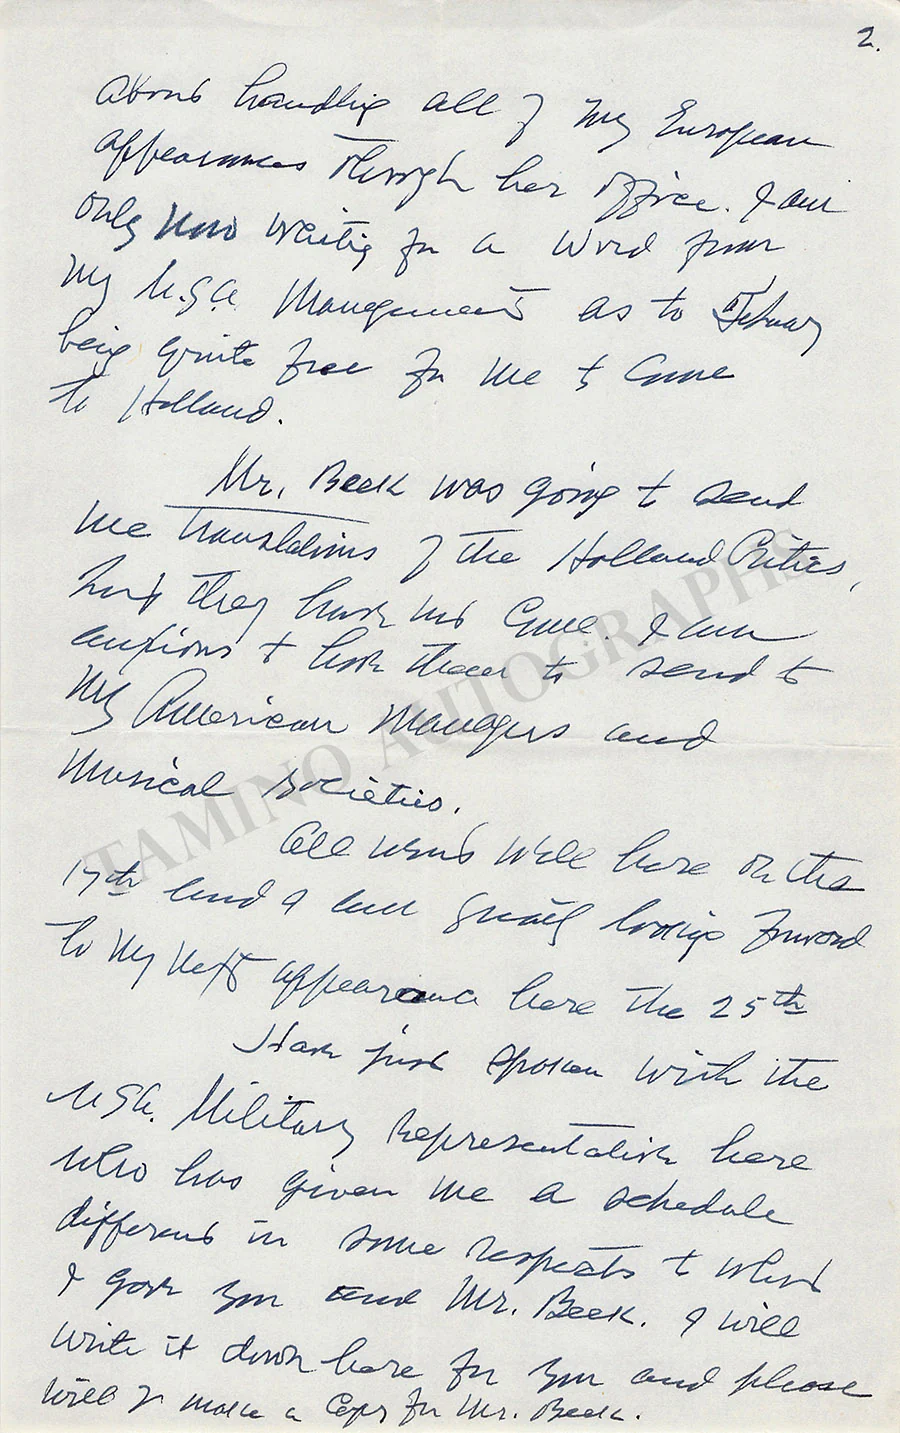 2.
about handling all of my European
appearances through her office. I am
only now waiting for a word from
my U.S.A. Management as to February
being quite free for me to come
to Holland.
Mr. Beek was going to send
me translations of the Holland Critics,
but they have not come. I am
anxious to have them to send to
my American Managers and
Musical Societies.
All went well here on the
17th and I am greatly looking forward
to my next appearance here the 25th
Have just spoken with the
U.S.A. Military Representative here
who has given me a schedule
different in some respects to what
I gave you and Mr. Beek. I will
write it down here for you and please
will you make a copy for Mr. Beek.
TAMINO AUTOGRAPHS